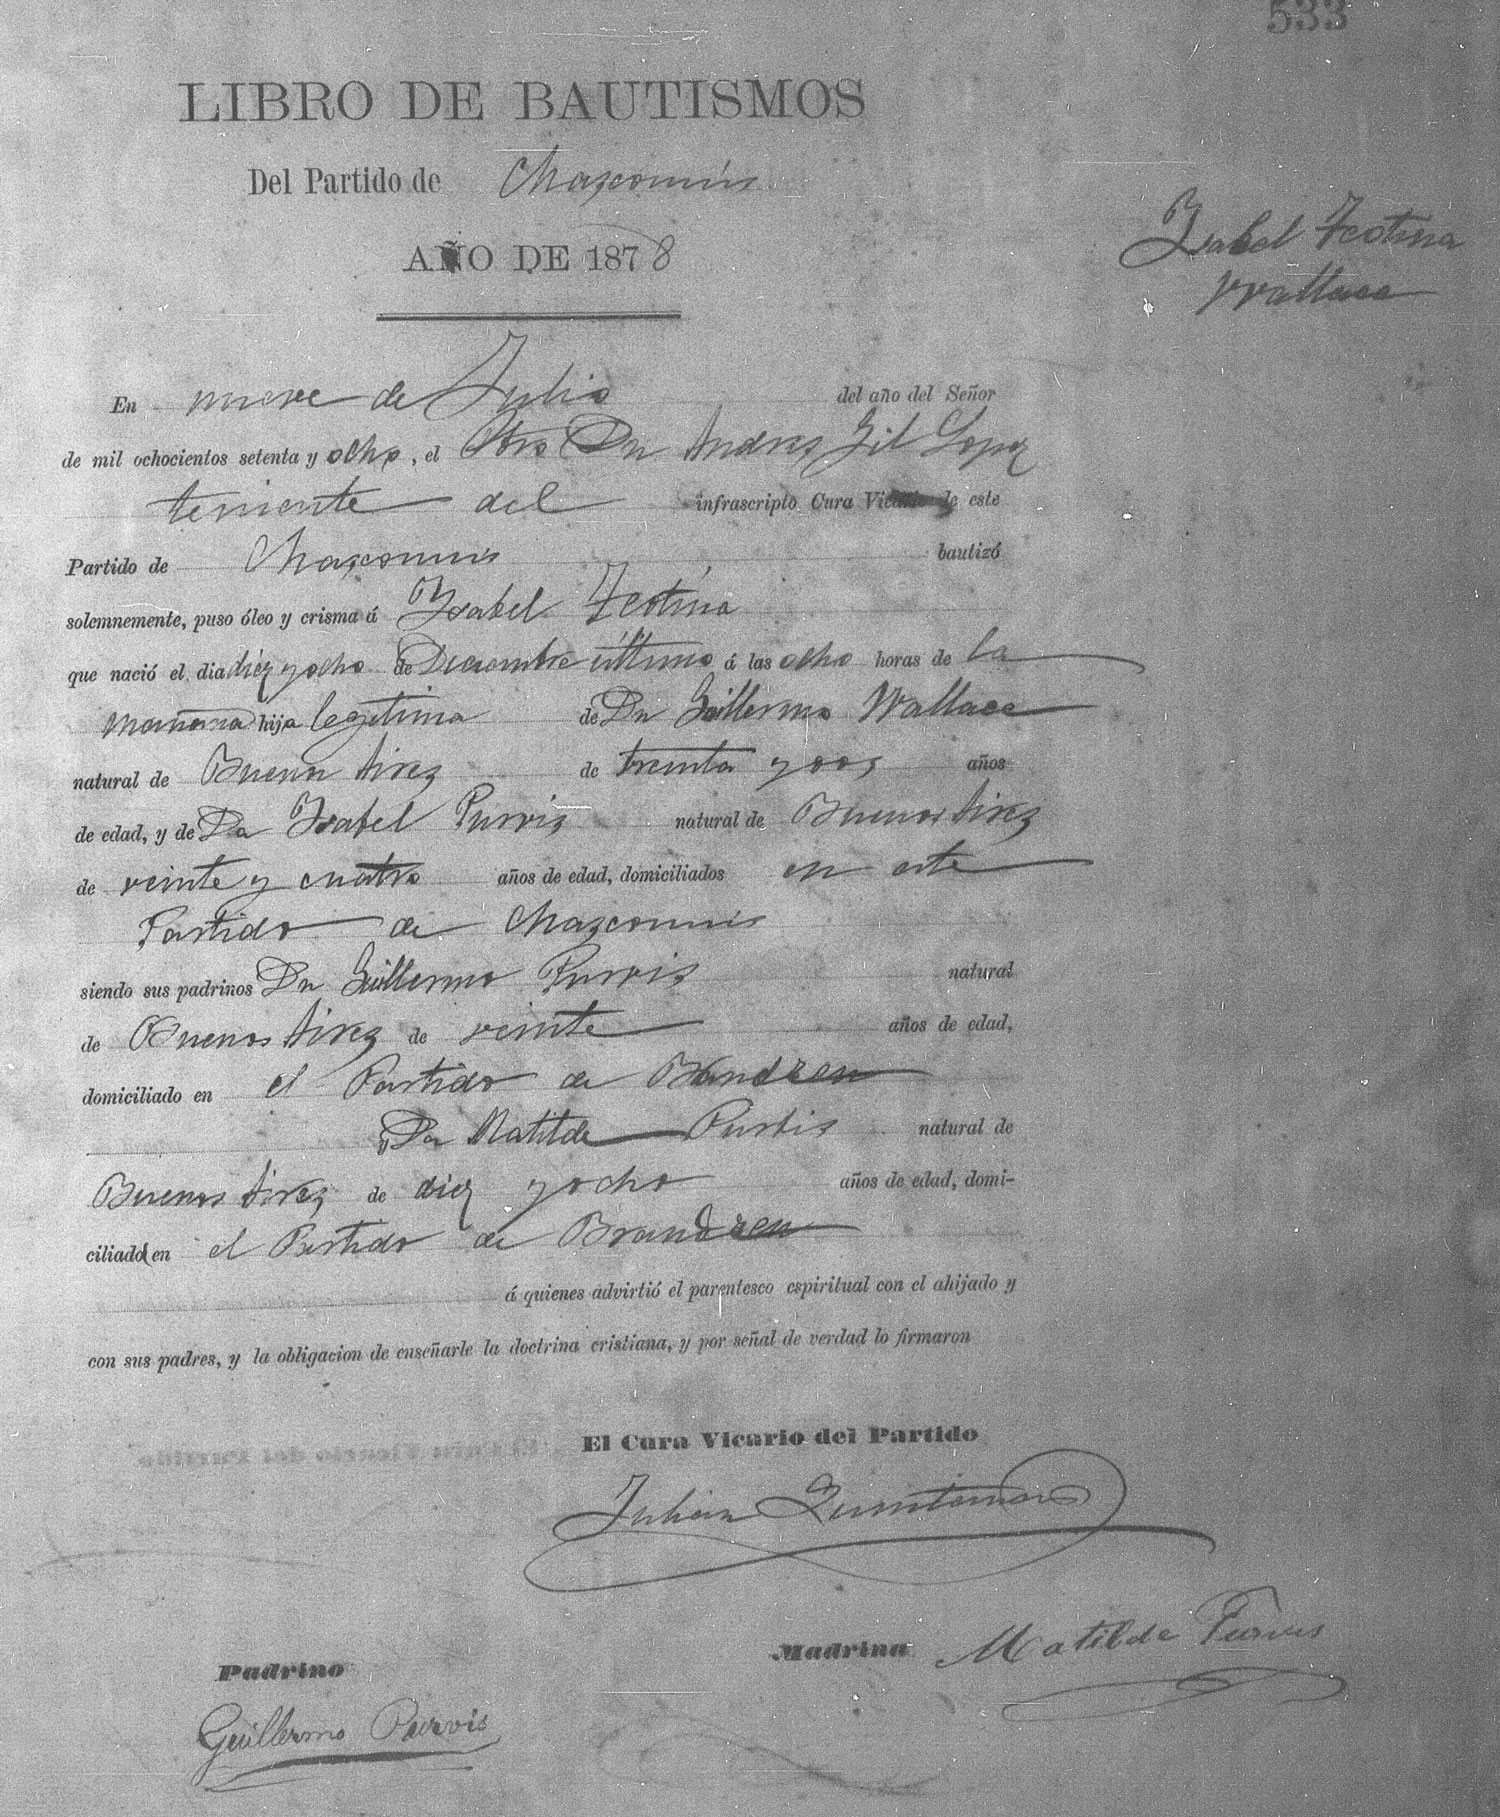 533
LIBRO DE BAUTISMOS
Del Partido de Chascomús
AÑO DE 1878
Isabel Teotina
Wallace
En nueve de Julio del año del Señor
de mil ochocientos setenta y ocho, el Pbro Dn Andres Gil Lopez
teniente del infrascripto Cura Vicario de este
Partido de Chascomus bautizó
solemnemente, puso óleo y crisma á Isabel Teotina
que nació el dia diez y ocho de Diciembre último á las ocho horas de la
mañana hija legitima de Dn Guillermo Wallace
natural de Buenos Aires de treinta y dos años
de edad, y de Da Isabel Purvis natural de Buenos Aires
de veinte y cuatro años de edad, domiciliados en este
Partido de Chascomus
siendo sus padrinos Dn Guillermo Purvis natural
de Buenos Aires de veinte años de edad,
domiciliado en el Partido de Brandzen
y Da Matilde Purbis natural de
Buenos Aires de diez y ocho años de edad, domi-
ciliada en el Partido de Brandzen
á quienes advirtió el parentesco espiritual con el ahijado y
con sus padres, y la obligacion de enseñarle la doctrina cristiana, y por señal de verdad lo firmaron
El Cura Vicario del Partido
Julian Quintana
Madrina Matilde Purvis
Padrino
Guillermo Purvis